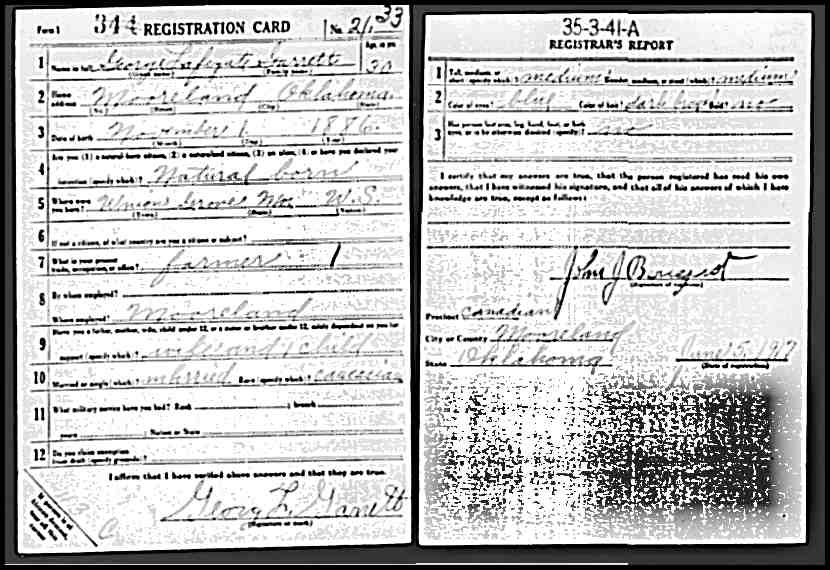 Form 1 344 REGISTRATION CARD No. 2/1 33
1 Name in full George Lafayate Garrett Age, in yrs. 30
(Given name) (Family name)
2 Home address Mooreland Oklahoma
(No.) (Street) (City) (State)
3 Date of birth November 1 1886
(Month) (Day) (Year)
4 Are you (1) a natural-born citizen, (2) a naturalized citizen, (3) an alien, (4) or have you declared your
intention (specify which)? Natural born
5 Where were you born? Union Grove Mo U.S.
(Town) (State) (Nation)
6 If not a citizen, of what country are you a citizen or subject?
7 What is your present trade, occupation, or office? farmer 1
8 By whom employed?
Where employed? Mooreland
9 Have you a father, mother, wife, child under 12, or a sister or brother under 12, solely dependent on you for
support (specify which)? wife and 1 child
10 Married or single (which)? married Race (specify which)? caucasian
11 What military service have you had? Rank ; branch
years ; Nation or State
12 Do you claim exemption from draft (specify grounds)?
I affirm that I have verified above answers and that they are true.
George L. Garrett
(Signature or mark)
35-3-41-A
REGISTRAR'S REPORT
1 Tall, medium, or short (specify which)? medium Slender, medium, or stout (which)? medium
2 Color of eyes? blue Color of hair? dark brown Bald? no
3 Has person lost arm, leg, hand, foot, or both eyes, or is he otherwise disabled (specify)? no
I certify that my answers are true, that the person registered has read his own
answers, that I have witnessed his signature, and that all of his answers of which I have
knowledge are true, except as follows:
John J
(Signature of registrar)
Precinct Canadian
City or County Mooreland
State Oklahoma June 5, 1917
(Date of registration)